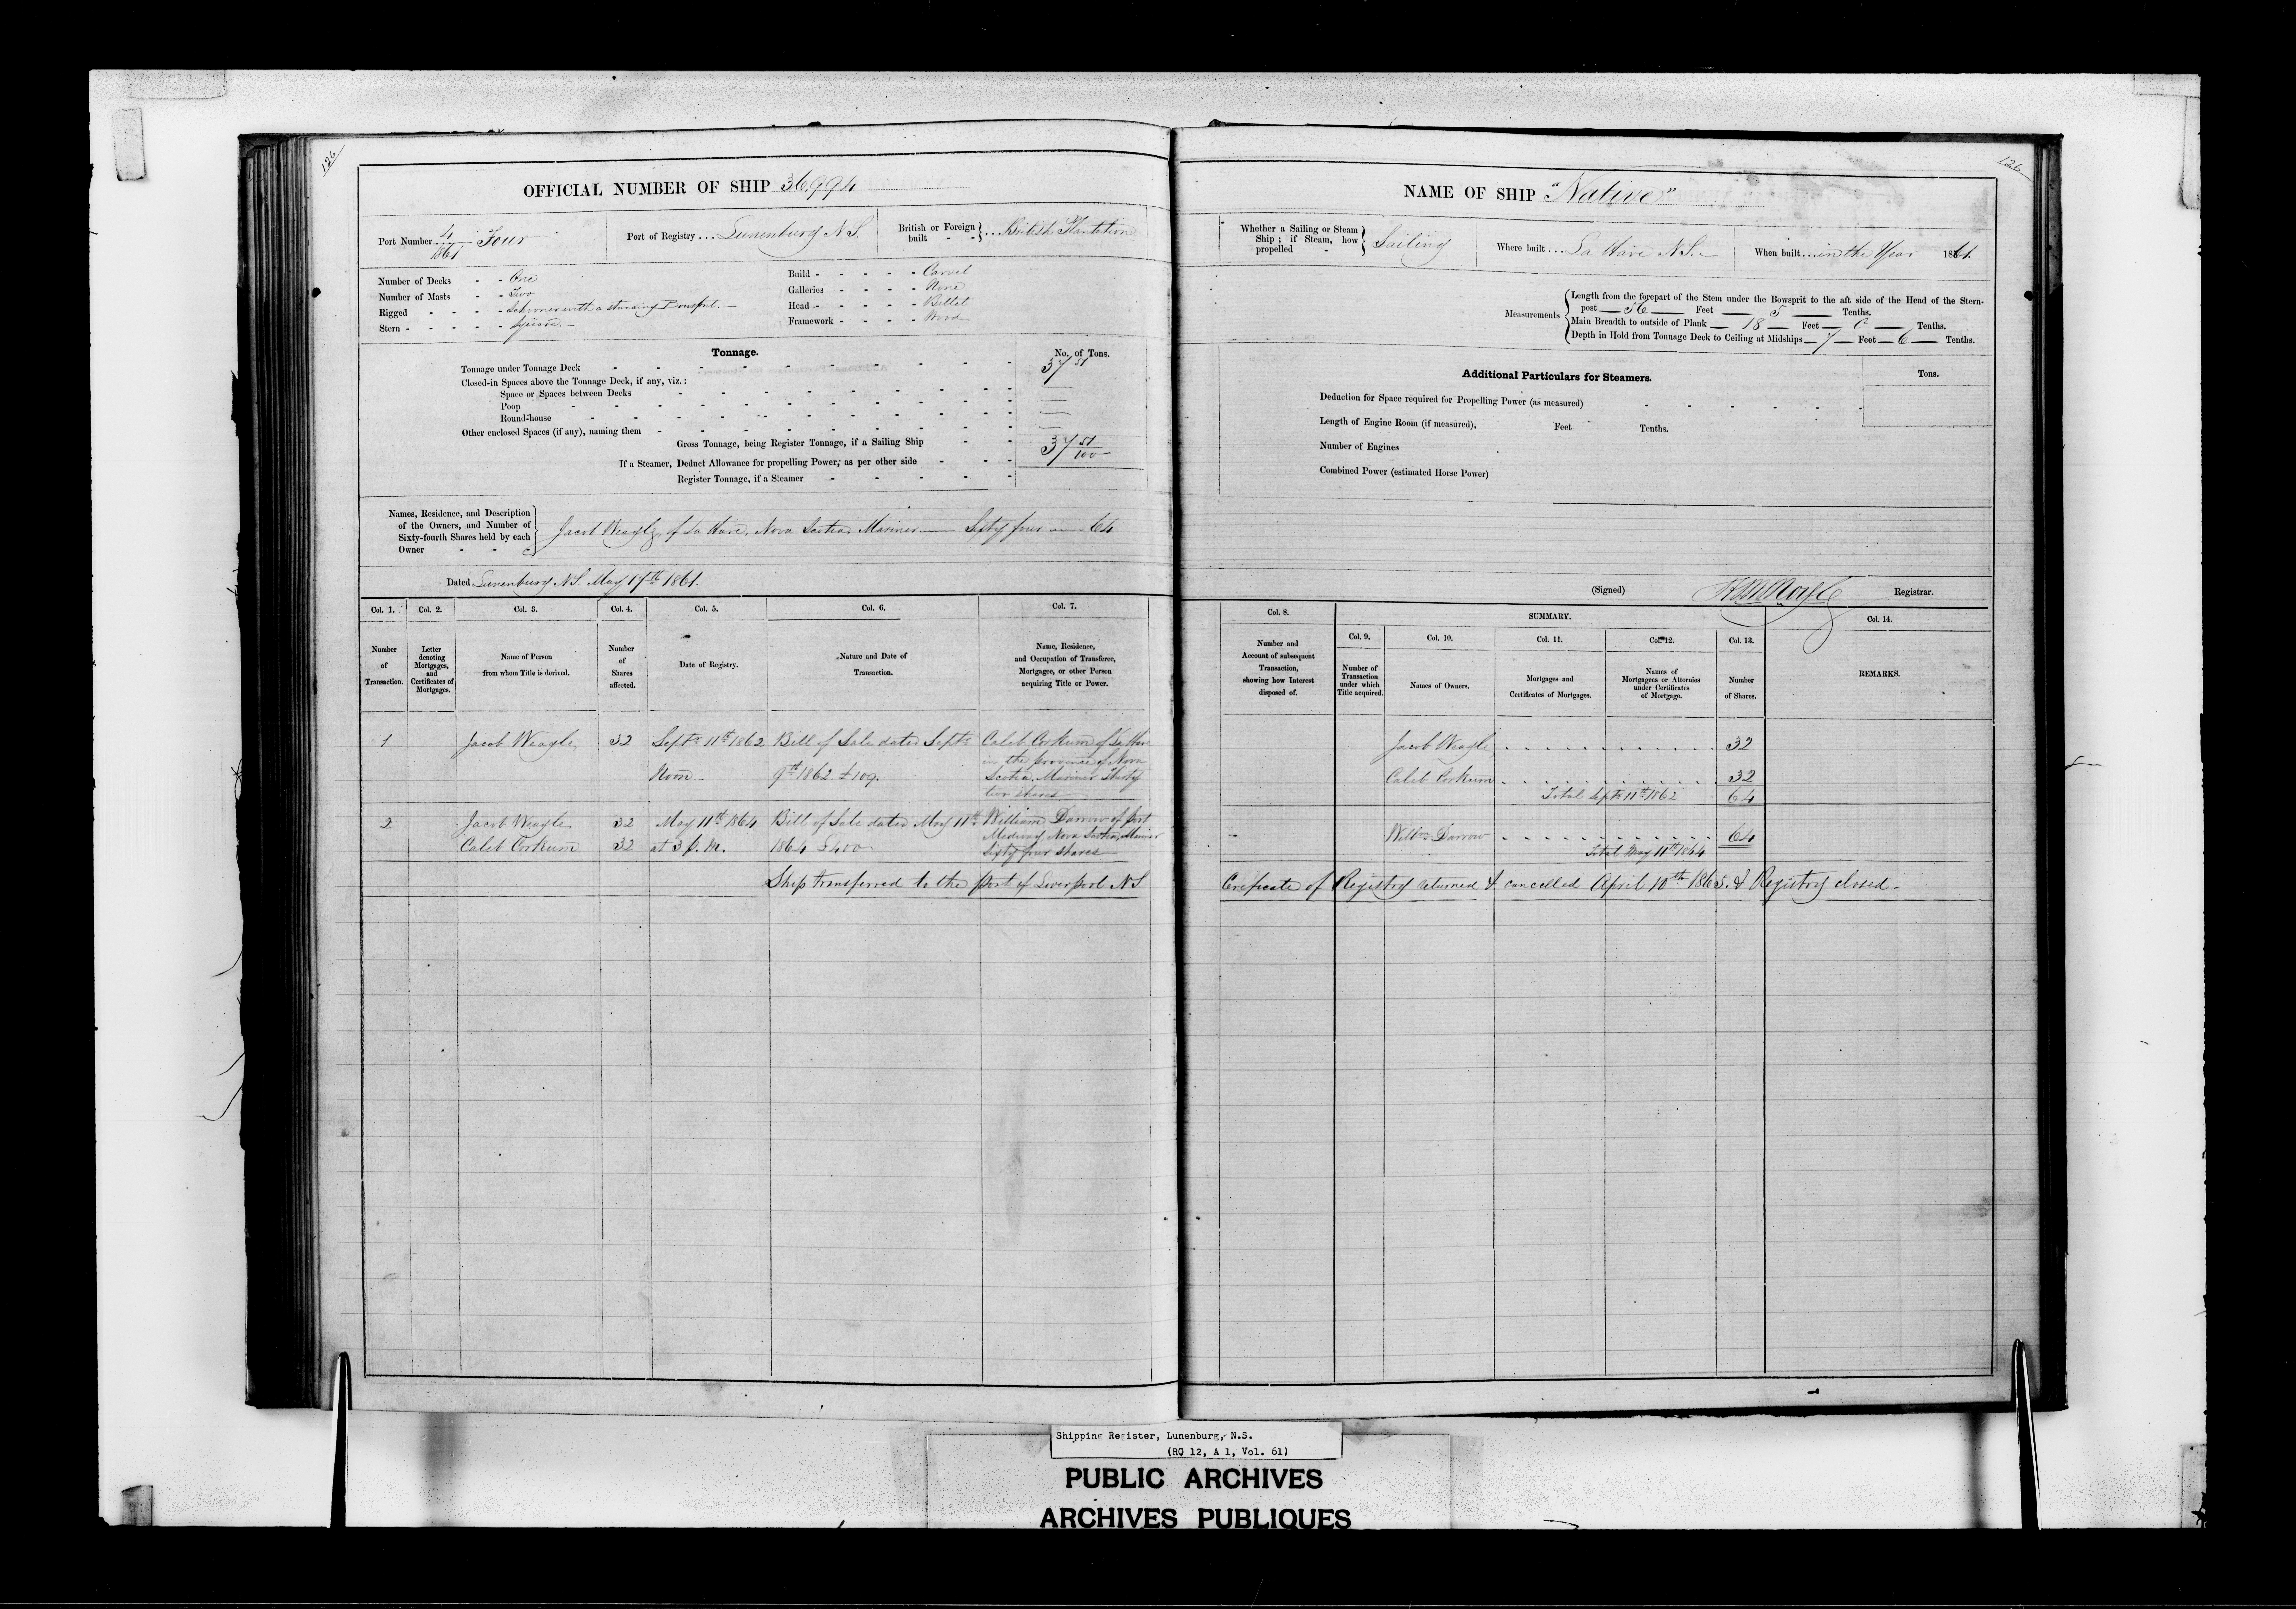 126
OFFICIAL NUMBER OF SHIP 36,994
Port Number 4/1861 Four
Port of Registry ... Lunenburg N.S.
British or Foreign built - - } ... British Plantation
Number of Decks - - One
Number of Masts - - Two
Rigged - - - - Schooner with a standing Bowsprit. —
Stern - - - - - Square. —
Build - - - - - - Carvel
Galleries - - - - - None
Head - - - - - - Billet
Framework - - - - Wood
Tonnage.
No. of Tons.
Tonnage under Tonnage Deck 37 51
Closed-in Spaces above the Tonnage Deck, if any, viz.:
Space or Spaces between Decks —
Poop —
Round-house —
Other enclosed Spaces (if any), naming them —
Gross Tonnage, being Register Tonnage, if a Sailing Ship 37 51/100
If a Steamer, Deduct Allowance for propelling Power, as per other side
Register Tonnage, if a Steamer
Names, Residence, and Description
of the Owners, and Number of
Sixty-fourth Shares held by each
Owner
Jacob Weagle, of La Have, Nova Scotia, Mariner — Sixty four — 64
Dated Lunenburg N.S. May 17th 1861.
Col. 1. Col. 2. Col. 3. Col. 4. Col. 5. Col. 6. Col. 7.
Number of Transaction.
Letter denoting Mortgages, and Certificates of Mortgages.
Name of Person from whom Title is derived.
Number of Shares affected.
Date of Registry.
Nature and Date of Transaction.
Name, Residence, and Occupation of Transferee, Mortgagee, or other Person acquiring Title or Power.
1 Jacob Weagle 32 Septr 11th 1862 Bill of Sale dated Septr Caleb Corkum of La Have
in the province of Nova
Noon - 9th 1862. £109. Scotia, Mariner Thirty
two shares
2 Jacob Weagle 32 May 11th 1864 Bill of Sale dated May 11th William Darrow of Port
Medway Nova Scotia, Mariner
Caleb Corkum 32 at 3 p.m. 1864 £400 Sixty four shares
Ship transferred to the port of Liverpool N.S.
126
NAME OF SHIP "Native"
Whether a Sailing or Steam Ship; if Steam, how propelled - } Sailing
Where built ... La Have N.S. —
When built ... in the Year 1861.
Measurements
Length from the forepart of the Stem under the Bowsprit to the aft side of the Head of the Stern-
post — 56 — Feet — 5 — Tenths.
Main Breadth to outside of Plank — 18 — Feet — 0 — Tenths.
Depth in Hold from Tonnage Deck to Ceiling at Midships — 7 — Feet — 6 — Tenths.
Additional Particulars for Steamers.
Tons.
Deduction for Space required for Propelling Power (as measured)
Length of Engine Room (if measured), Feet Tenths.
Number of Engines
Combined Power (estimated Horse Power)
(Signed) Registrar.
Col. 8.
SUMMARY.
Col. 9. Col. 10. Col. 11. Col. 12. Col. 13. Col. 14.
Number and Account of subsequent Transaction, showing how Interest disposed of.
Number of Transaction under which Title acquired.
Names of Owners.
Mortgages and Certificates of Mortgages.
Names of Mortgagees or Attornies under Certificates of Mortgage.
Number of Shares.
REMARKS.
Jacob Weagle 32
Caleb Corkum 32
Total Septr 11th 1862 64
Willm Darrow 64
Total May 11th 1864
Cerificate of Registry returned & cancelled April 10th 1865. & Registry closed -
Shipping Register, Lunenburg, N.S.
(RG 12, A 1, Vol. 61)
PUBLIC ARCHIVES
ARCHIVES PUBLIQUES